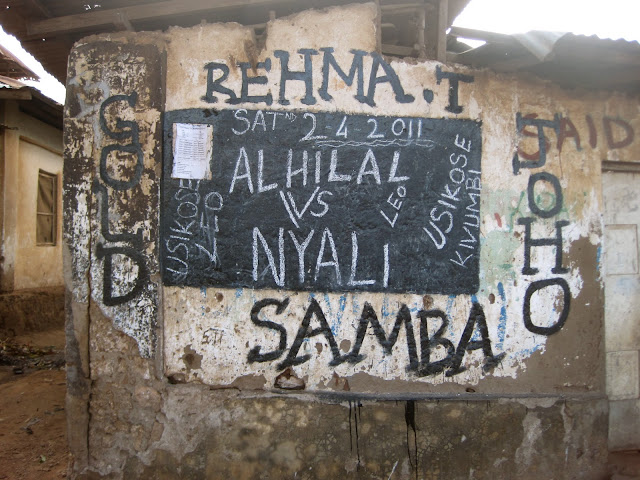 REHMA.T
GOLD
SAT 2 4 2011
AL HILAL
VS
NYALI
LEO
USIKOSE
USIKOSE
KIVUMBI
JOHO
SAID
SAMBA